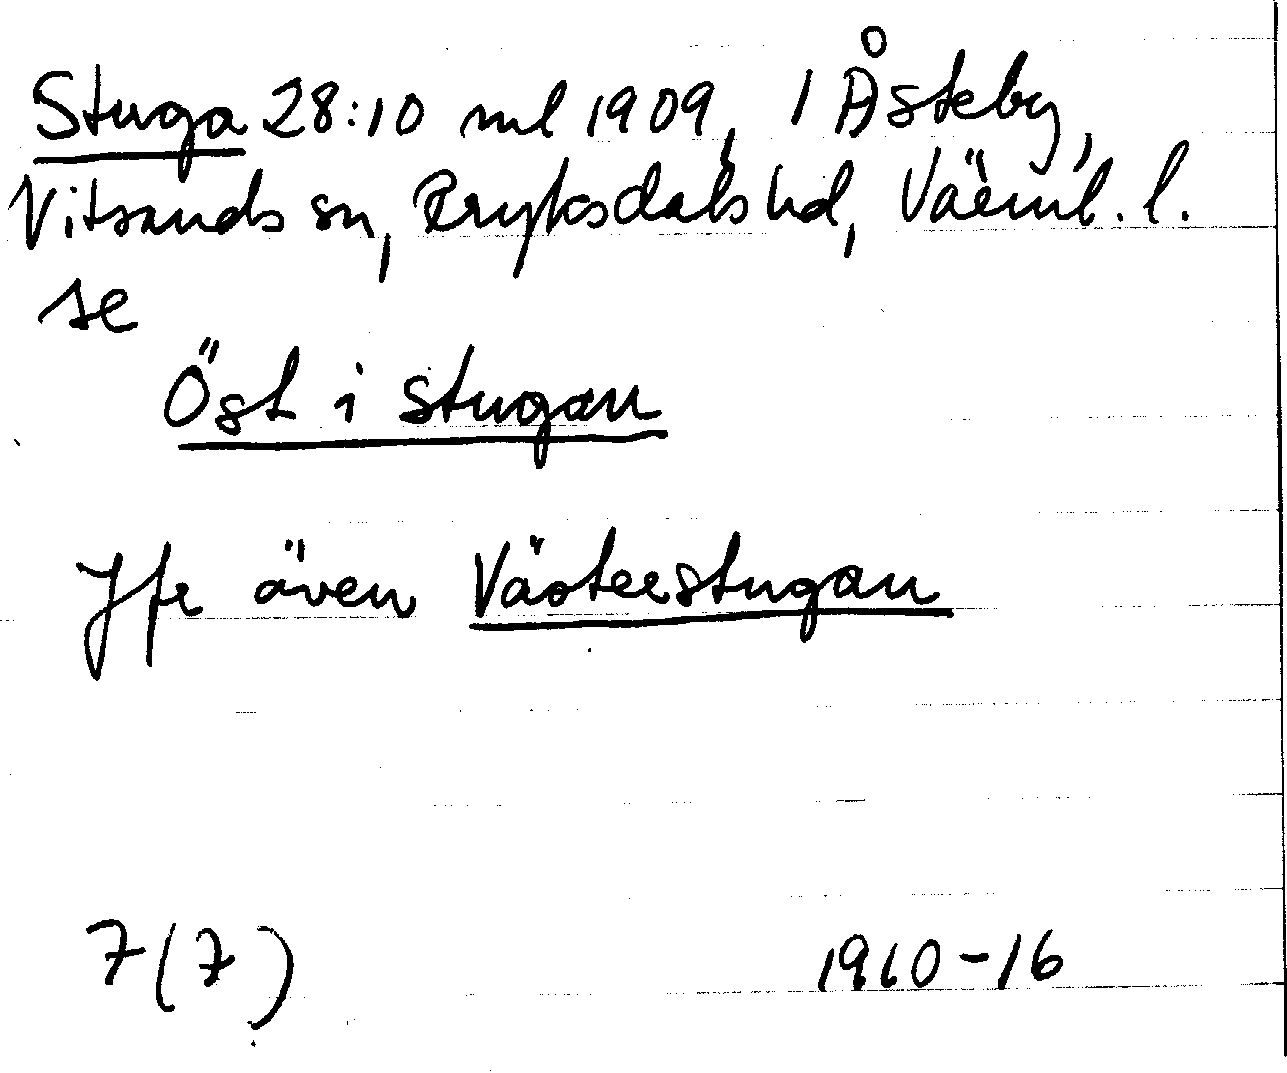 Stuga 28:10 ml 1909, 1 Åsteby,
Vitsands sn, Fryksdals hd, Värml. l.
se
Öst i stugan
Jfr även Västerstugan
7(7) 1910-16